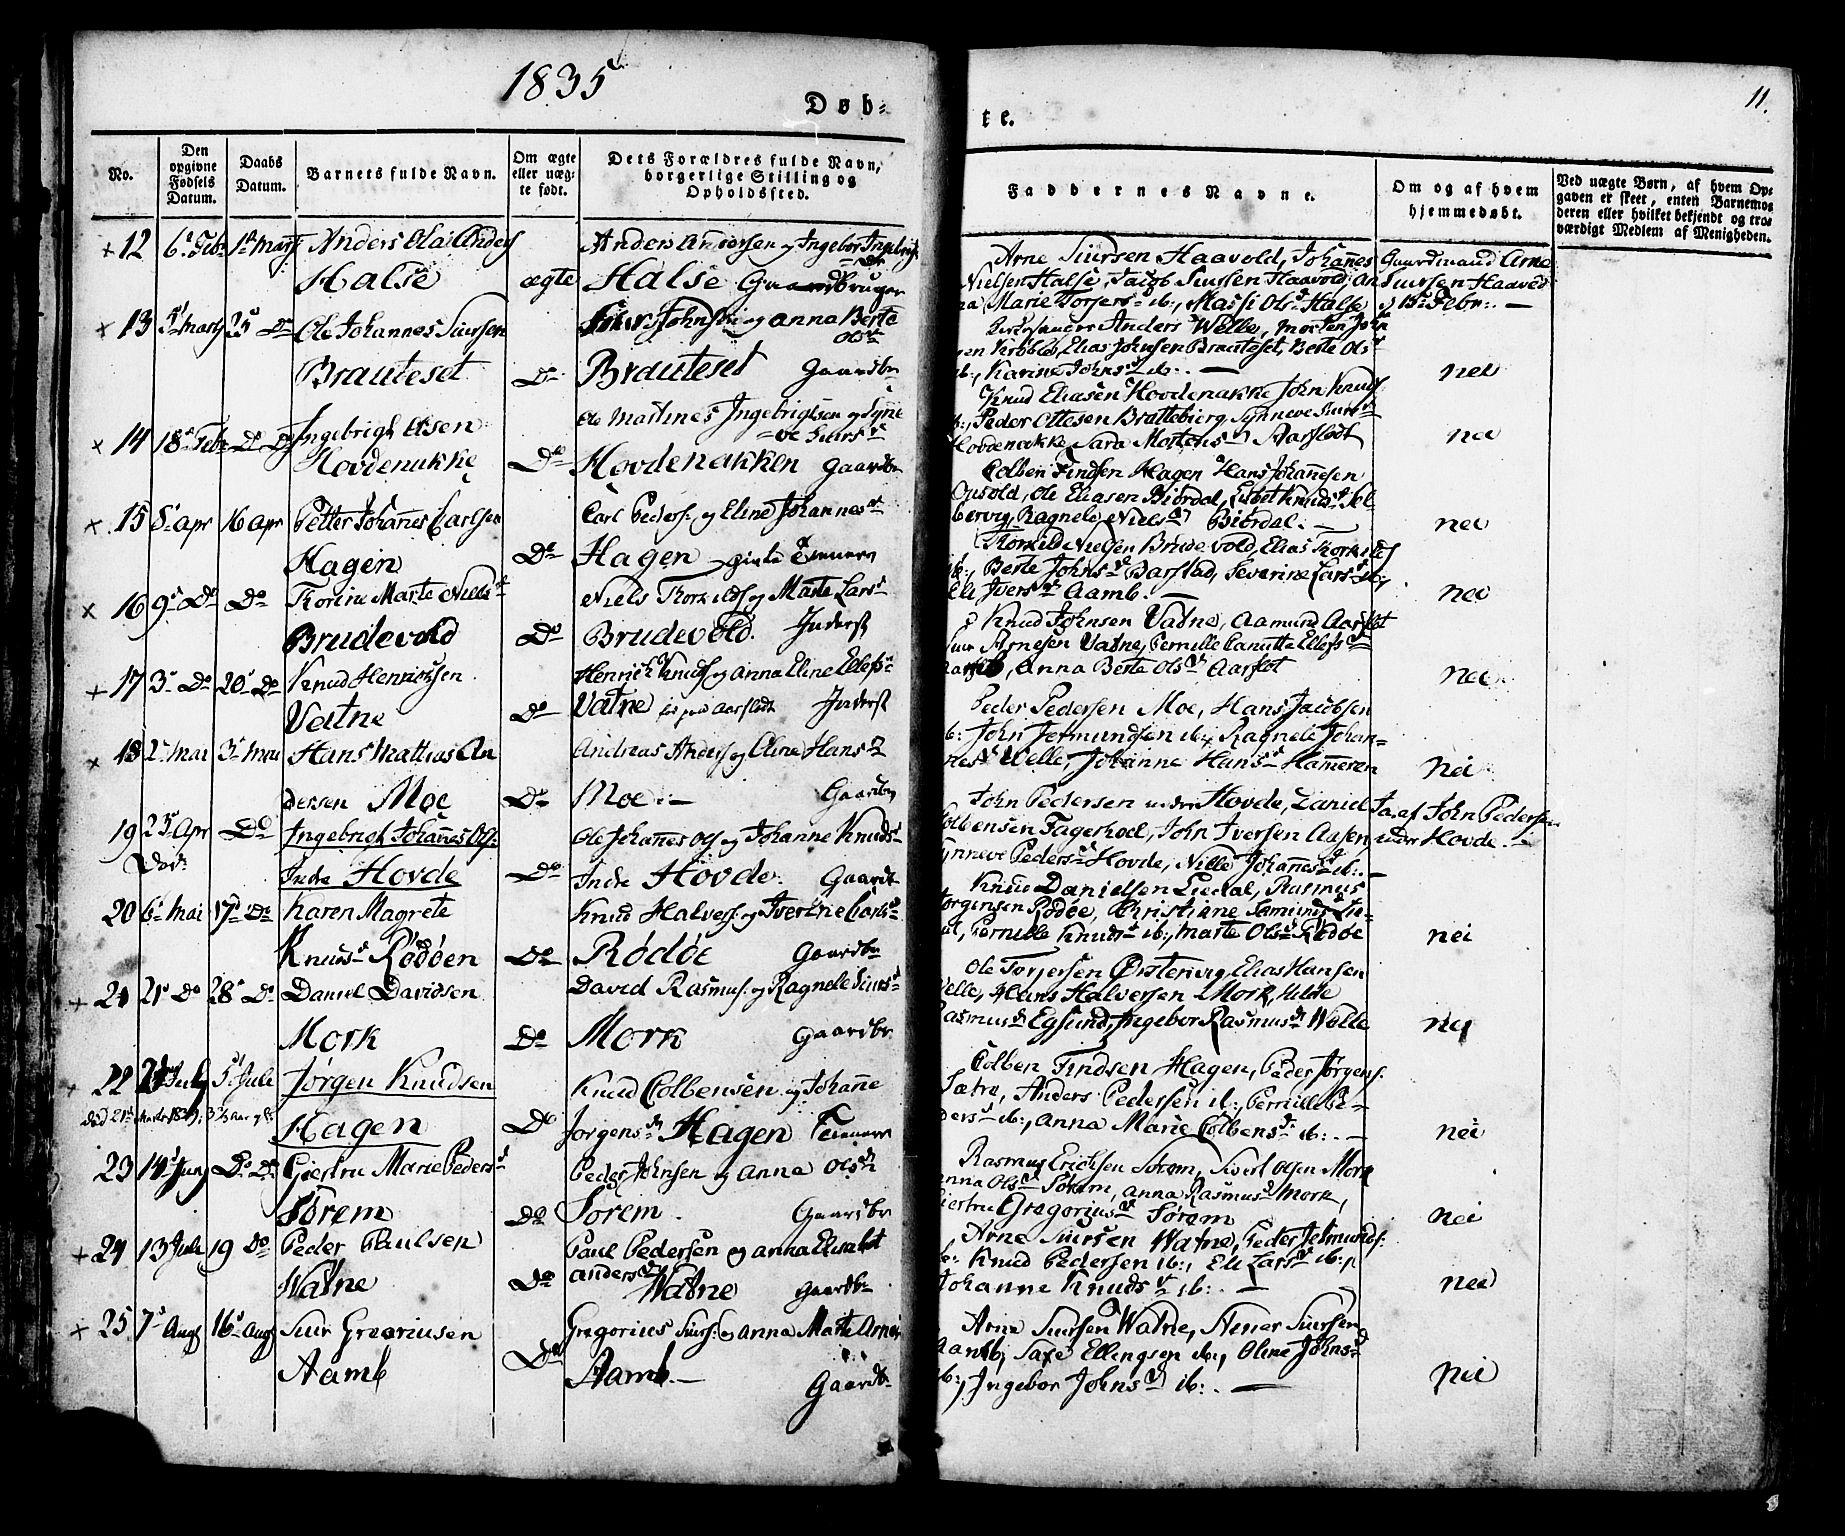 1835
Døb-
te.
11.
No.
Den opgivne Fødsels Datum.
Daabs Datum.
Barnets fulde Navn.
Om ægte eller uægte født.
Dets Forældres fulde Navn, borgerlige Stilling og Opholdssted.
Faddernes Navne.
Om og af hvem hjemmedøbt.
Ved uægte Børn, af hvem Opgaven er skeet, enten Barnemoderen eller hvilket bekjendt og troværdigt Medlem af Menigheden.
+ 12 6. Feb. 1. Marts Anders Anders Andersen og Ingebor
Halse ægte Halse Gaardbruger
Arne Siursen Haavold, Johannes Gaardmand Arne
Nielsen Halse, Jacob Siursen Haavold, An Siursen Haavold
na Marie ib:, Massi Olsd Halse 15. Febr: —
× 13 25 Do Ole Johannes Siursen og Anna Berte Olsd
Brauteset Do Brauteset Gaardbr
Anders Welle, Morten John
Elias Johnsen Brauteset, Berte Olsd
ib:, Karine Johnsd ib: — nei
× 14 18. Feb. Do Do Ingebrigt Olsen Ole Martines Ingebrigtsen og Synne
ve Siursd
Hovdenakke Do Hovdenakken Gaardbr
Knud Eliasen Hovdenakke John Knuds
Peder Ottesen Brattebierg, Synneve
Hovdenakke, Sara Mortensd Aarflodt nei
× 15 8. Apr 16 Apr Petter Johannes Carlsen Carl Peders. og Eline Johannesd
Hagen Do Hagen
Colben Findsen Hagen Hans Johannesen
Opsvold, Ole Eliasen Biørdal, Lisbet Knudsd
bervig, Ragnele Nielsd Biørdal. — nei
× 16 9. Do Do Marte Nielsd Niels og Marte Larsd
Brudevold Do Brudevold. Inderst
Nielsen Brudevold, Elias
ib:, Berte Johnsd Barstad, Severine Larsd ib:,
Eli Iversd Aamb. — nei
+ 17 3. Do 20. Do Knud Henriksen Henrik Knuds og Anna Eline
Vatne Do Vatne Inderst
Knud Johnsen Vatne, Aamund Aarflot
Siur Arnesen Vatne, Pernille
Anna Berte Olsd Aarflot nei
× 18 2. Mai 3. Mai Hans Mathias An Andreas Anders og Oline Hansd
dersen Moe Do Moe. — Gaardbr
Peder Pedersen Moe, Hans Jacobsen
ib: John Jetmundsen ib:, Ragnele Johan-
nesd Welle, Johanne Hansd Hameren nei
19 23. Apr Do Ingebrigt Johannes Ols. Ole Johannes Ols og Johanne Knudsd
Død:
Indre Hovde Do Indre Hovde. Gaardb
John Pedersen under Hovde, Daniel Ja, af John Pedersen
Colbensen Fagerhoel, John Iversen Aasen under Hovde. —
Synneve Pedersd Hovde, Nille Johannesd ib:. —
20 6. Mai 17. Do Karen Magrete Knud Halvers. og Iverine Carlsd
Knudsd Rødøen Do Rødøe Gaardbr
Knud Danielsen Liedal, Rasmus
Jørgensen Rødøe, Christiane
Pernille Knudsd ib:, Marte Olsd Rødøe nei
+ 21 21. Do 28. Do Daniel Davidsen David Rasmus. og Ragnele Siursd
Mork Do Mork Gaardbr
Ole Torjersen Ørstenvig, Elias Hansen
Velle, Hans Halversen Mork, Hilde
Rasmusd Egsund, Ingebor Rasmusd Welle nei
+ 22 July 5. Jule Jørgen Knudsen Knud Colbensen og Johanne
Hagen Do Jørgensd Hagen
Colben Findsen Hagen, Peder Jørgens.
Sætre, Anders Pedersen ib:, Pernille Pe-
dersd ib:, Anna Marie Colbensd ib:. — nei
23 14. Juny Do Do Giertru Marie Pedersd Peder Johnsen og Anna Olsd
Sørem Do Sørem. Gaardbr
Rasmus Erichsen Sørem, Siverl Olsen Mork
Anna Olsd Sørem, Anna Rasmusd Mork,
Giertru Gregoriusd Sørem nei
+ 24 13 Jule 19 Do Peder Paulsen Paul Pedersen og Anna Elisabet
Watne Do Andersd Watne Gaardbr
Arne Siursen Watne, Peder Jetmunds.
Knud Pedersen ib:, Eli Larsd ib:,
Johanne Knudsd ib:. — nei
× 25. 7. Aug 16. Aug Siur Gregriusen Gregorius Siurs. og Anna Marte Arnes
Aamb Do Aamb. — Gaardb
Arne Siursen Watne, Stener Siursen
Aamb, Saxe Ellingsen ib:, Oline Johnsd
ib:, Ingebor Johnsd ib:. — nei